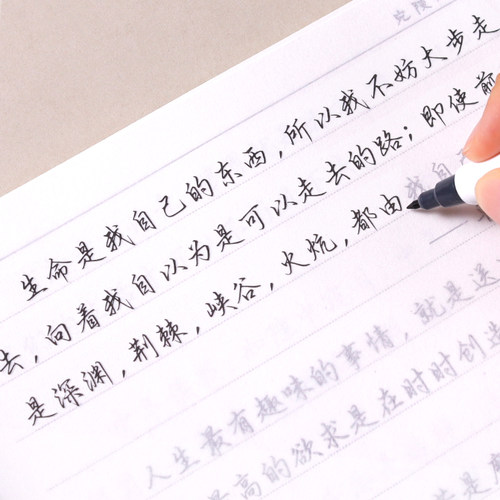 生命是我自己的东西，所以我不妨大步走
去，向着我自以为是可以走去的路；即使前
是深渊，荆棘，峡谷，火坑，都由我自
人生最有趣味的事情，就是送
最高的欲求是在时时创造